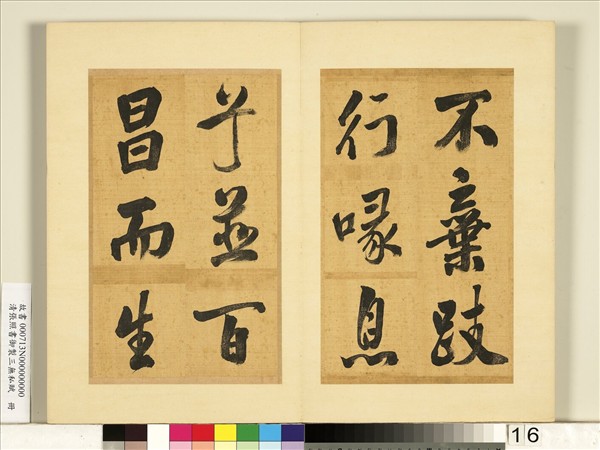 不棄跂
行喙息
於並百
昌而生
故書 000713N000000000
清張照書御製三無私賦 冊
16